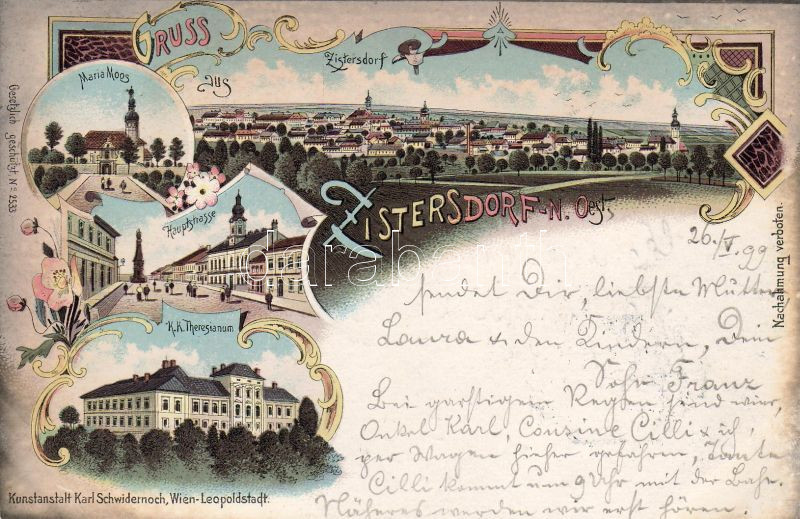 GRUSS
aus
Zistersdorf
Maria Moos
Gesetzlich geschützt No 2533
Hauptstrasse
ZISTERSDORF-N. Oest.
darabanth
K.K. Theresianum
Nachahmung verboten.
26./V. 99
sendet Dir, liebste Mutter,
Laura & den Kindern, Dein
Sohn Franz
Bei garstigem Regen sind wir,
Onkel Karl, Cousine Cilli & ich
per Wagen hieher gefahren, Tante
Cilli kommt um 9 Uhr mit der Bahn.
Näheres werden wir erst hören.
Kunstanstalt Karl Schwidernoch, Wien-Leopoldstadt.